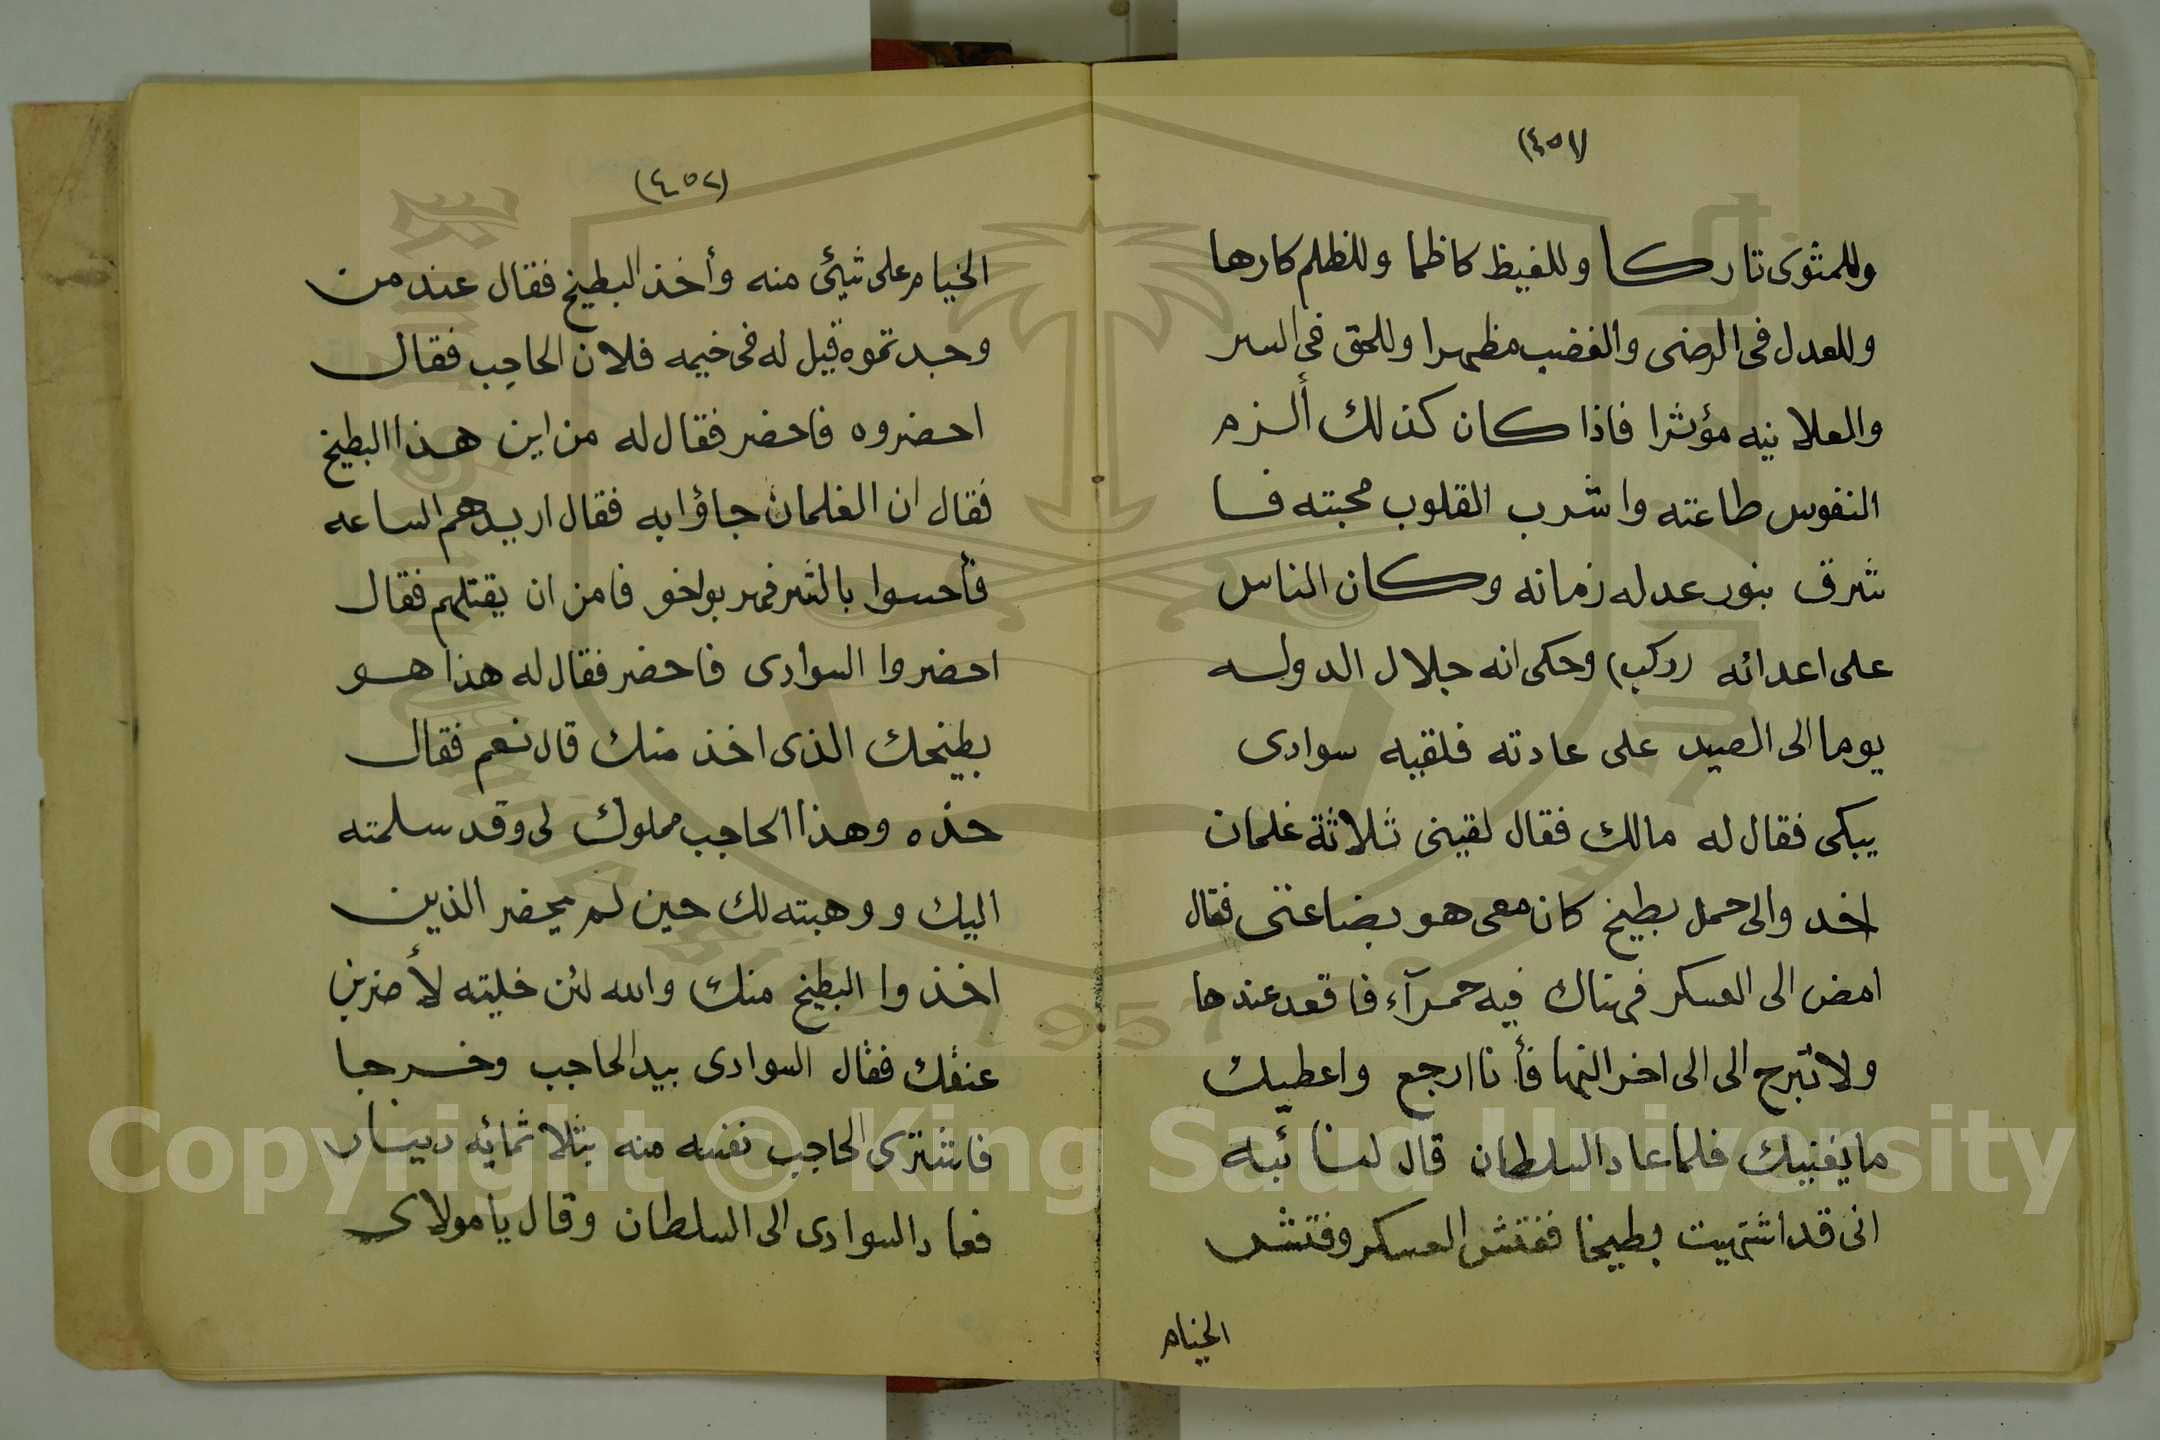 (٤٥١)
وللمثوى تاركا وللغيظ كاظما وللظلم كارها
وللعدل فى الرضى والغضب مظهرا وللحق فى السر
والعلانيه مؤثرا فاذا كان كذلك ألزم
النفوس طاعته واشرب القلوب محبته فا
شرق بنور عدله زمانه وكان الناس
على اعدائه (ركب) وحكى انه جلال الدوله
يوما الى الصيد على عادته فلقيه سوادى
يبكى فقال له مالك فقال لقينى ثلاثة غلمان
اخد والى حمل بطيخ كان معى هو بضاعتى فقال
امض الى العسكر فهناك فيه حمرآء فاقعد عندها
ولا تبرح الى الى اخر النها فأنا ارجع واعطيك
ما يغنيك فلما عاد السلطان قال لنائبه
انى قد اشتهيت بطيخا ففتش العسكر وفتش
الخيام
(٤٥٢)
الخيام على شيئ منه وأخذ البطيخ فقال عند من
وجدتموه قيل له فى خيمه فلان الحاجب فقال
احضروه فاحضر فقال له من اين هذا البطيخ
فقال ان الغلمان جاؤا به فقال اريدهم الساعه
فأحسوا بالشر فهربوا خو فا من ان يقتلهم فقال
احضروا السوادى فاحضر فقال له هذا هو
بطيخك الذى اخذ منك قال نعم فقال
خذه وهذا الحاجب مملوك لى وقد سلمته
اليك ووهبته لك حين لم يحضر الذين
اخذوا البطيخ منك والله لئن خليته لأضربن
عنقك فقال السوادى بيد الحاجب وخرجا
فاشترى الحاجب نفسه منه بثلاثمائه دينار
فعاد السوادى الى السلطان وقال يا مولاى
1957
Copyright © King Saud University